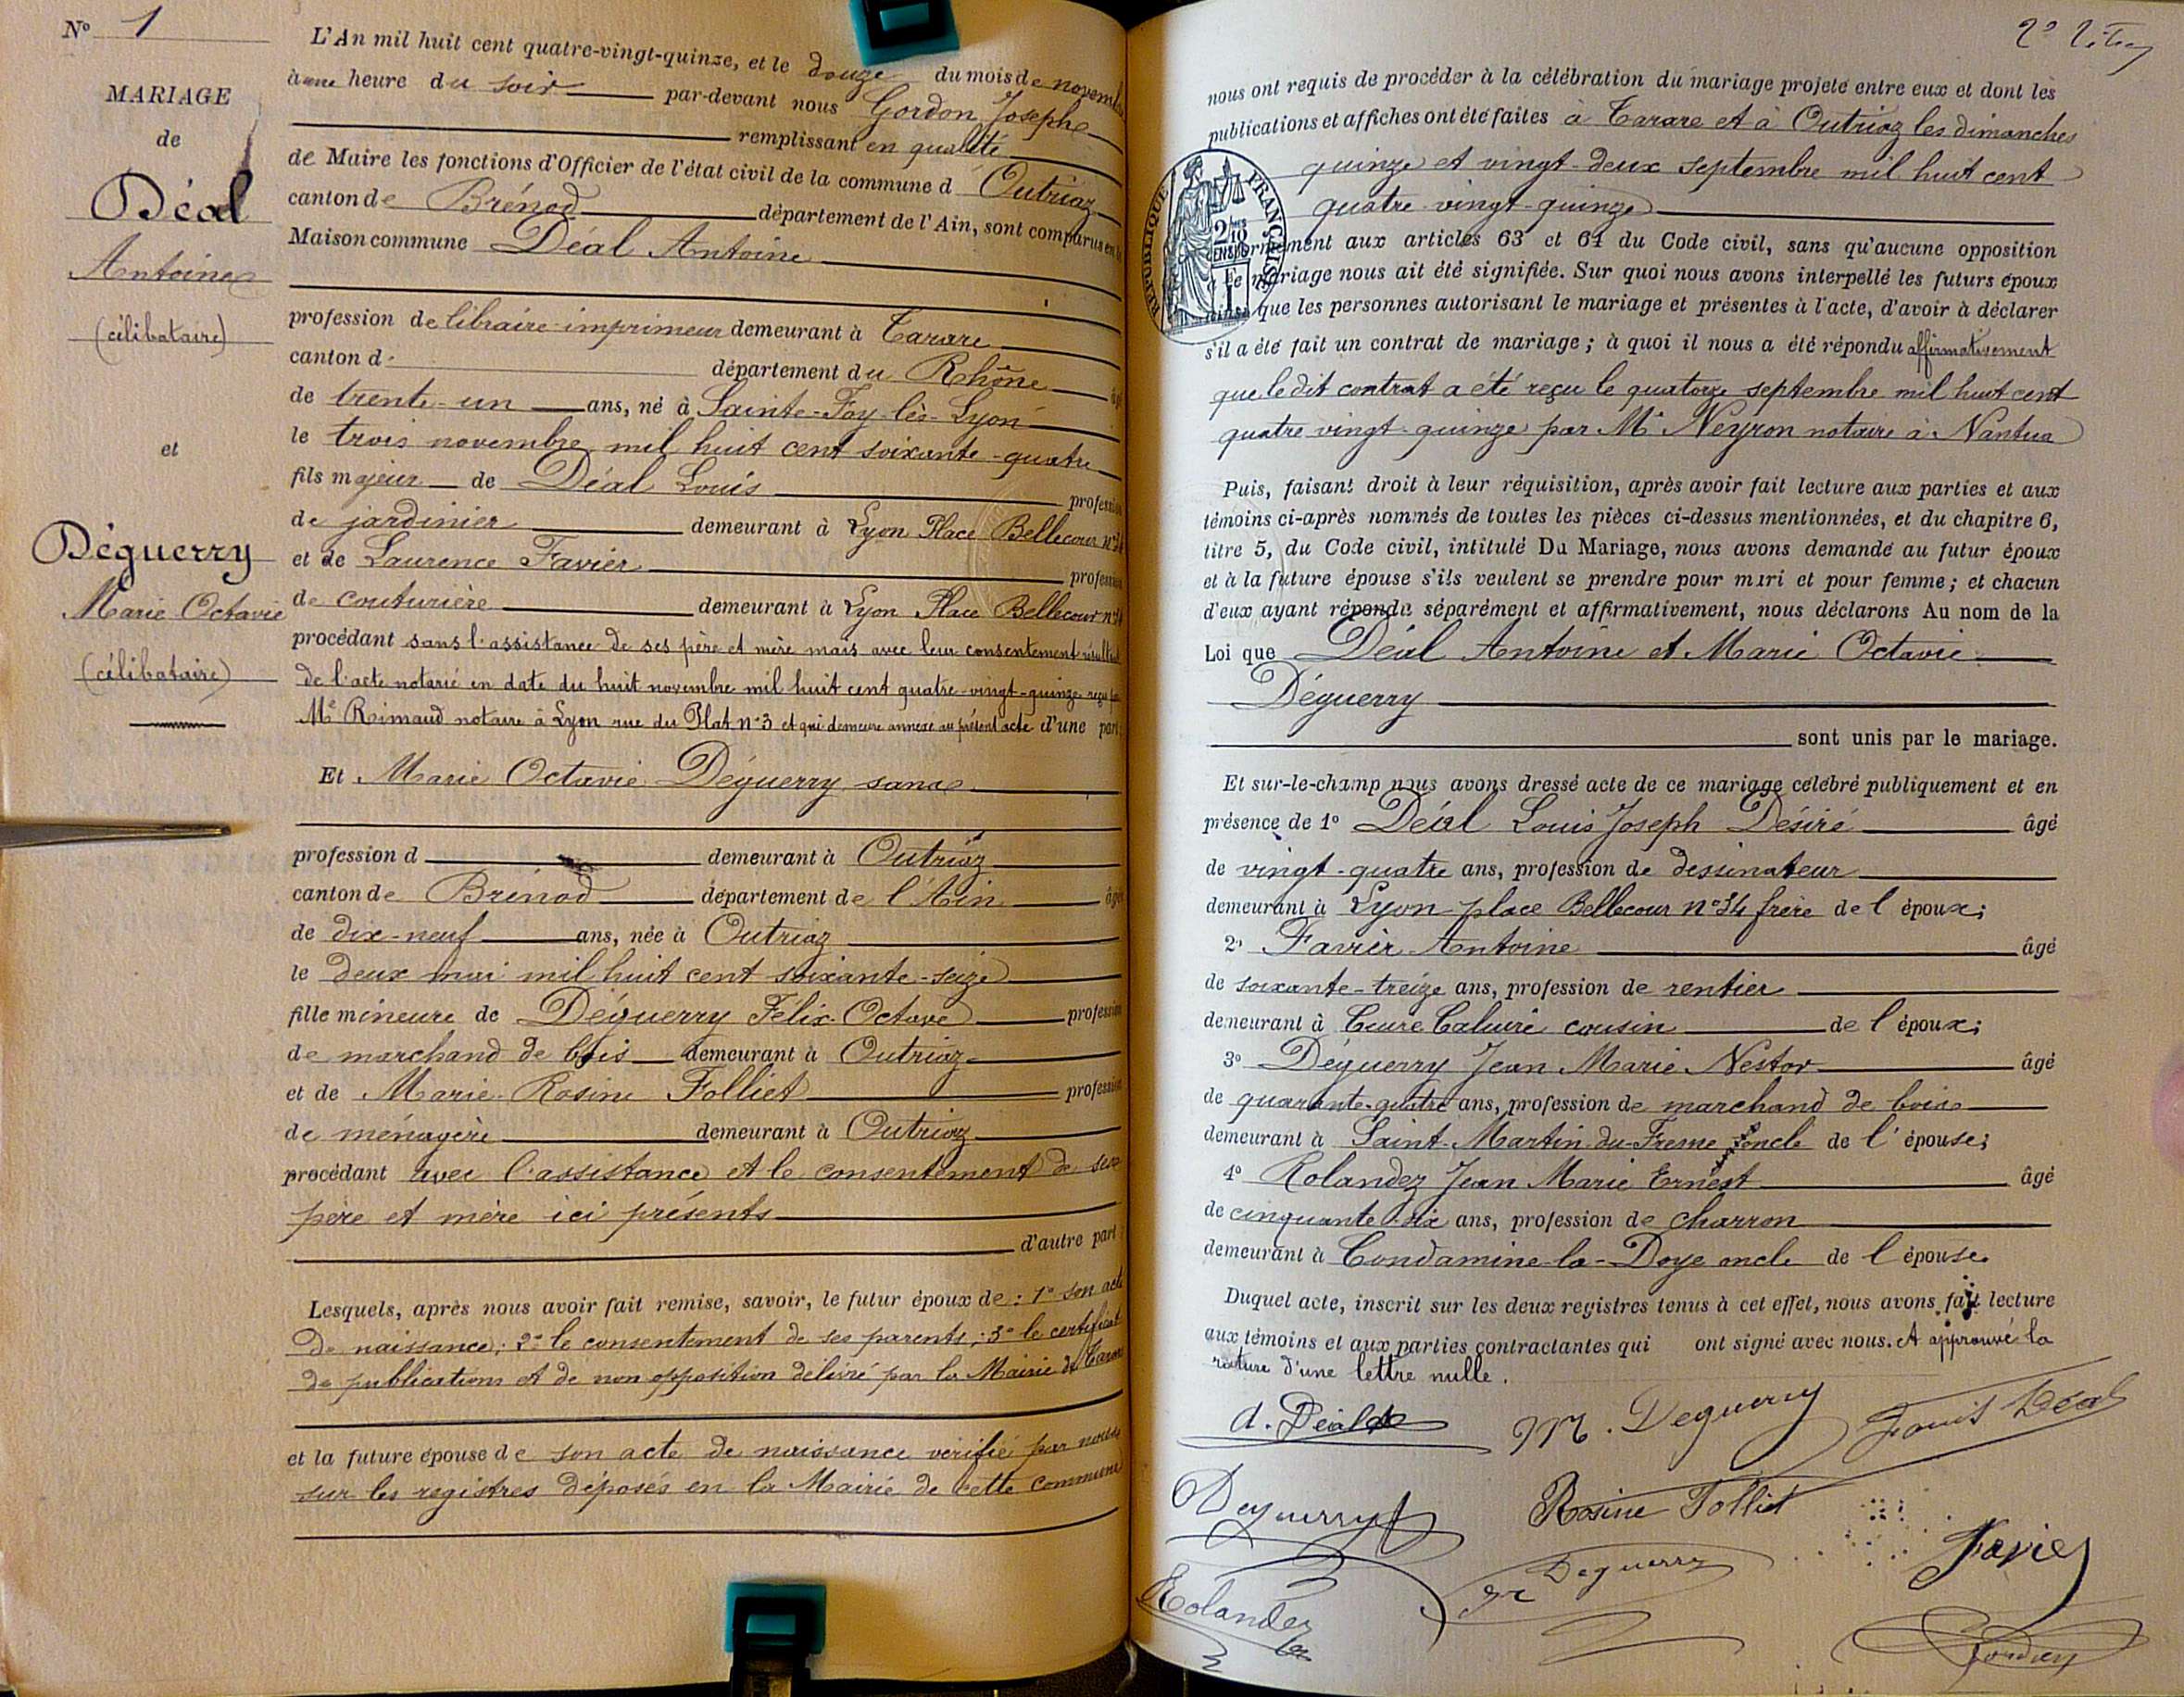 Nº 1
MARIAGE
de
Déal
Antoine
(célibataire)
et
Déguerry
Marie Octavie
(célibataire)
L'An mil huit cent quatre-vingt-quinze, et le douze du mois de novembre
à une heure du soir par-devant nous Gordon Joseph
remplissant en qualité
de Maire les fonctions d'Officier de l'état civil de la commune d Outriaz
canton de Brénod département de l'Ain, sont comparus en la
Maison commune Déal Antoine
profession de libraire-imprimeur demeurant à Tarare
canton d département du Rhône âgé
de trente-un ans, né à Sainte-Foy-lès-Lyon
le trois novembre mil huit cent soixante-quatre
fils majeur de Déal Louis profession
de jardinier demeurant à Lyon Place Bellecour n° 34
et de Laurence Favier profession
de couturière demeurant à Lyon Place Bellecour n° 34
procédant sans l'assistance de ses père et mère mais avec leur consentement résultant
de l'acte notarié en date du huit novembre mil huit cent quatre-vingt-quinze reçu par
Me Rimaud notaire à Lyon rue du Plat n° 3 et qui demeure annexé au présent acte d'une part;
Et Marie Octavie Déguerry sans
profession d demeurant à Outriaz
canton de Brénod département de l'Ain âgée
de dix-neuf ans, née à Outriaz
le deux mai mil huit cent soixante-seize
fille mineure de Déguerry Félix Octave profession
de marchand de bois demeurant à Outriaz
et de Marie Rosine Folliet profession
de ménagère demeurant à Outriaz
procédant avec l'assistance et le consentement de ses
père et mère ici présents
d'autre part;
Lesquels, après nous avoir fait remise, savoir, le futur époux de : 1° son acte
de naissance; 2° le consentement de ses parents; 3° le certificat
de publications et de non opposition délivré par la Mairie de Tarare
et la future épouse de son acte de naissance vérifié par nous
sur les registres déposés en la Mairie de cette commune
nous ont requis de procéder à la célébration du mariage projeté entre eux et dont les
publications et affiches ont été faites à Tarare et à Outriaz les dimanches
quinze et vingt-deux septembre mil huit cent
quatre-vingt-quinze
RÉPUBLIQUE FRANÇAISE
conformément aux articles 63 et 64 du Code civil, sans qu'aucune opposition
à ce mariage nous ait été signifiée. Sur quoi nous avons interpellé les futurs époux
ainsi que les personnes autorisant le mariage et présentes à l'acte, d'avoir à déclarer
s'il a été fait un contrat de mariage; à quoi il nous a été répondu affirmativement
que le dit contrat a été reçu le quatorze septembre mil huit cent
quatre vingt-quinze par Me Neyron notaire à Nantua
Puis, faisant droit à leur réquisition, après avoir fait lecture aux parties et aux
témoins ci-après nommés de toutes les pièces ci-dessus mentionnées, et du chapitre 6,
titre 5, du Code civil, intitulé Du Mariage, nous avons demandé au futur époux
et à la future épouse s'ils veulent se prendre pour mari et pour femme; et chacun
d'eux ayant répondu séparément et affirmativement, nous déclarons Au nom de la
Loi que Déal Antoine et Marie Octavie
Déguerry
sont unis par le mariage.
Et sur-le-champ nous avons dressé acte de ce mariage célébré publiquement et en
présence de 1° Déal Louis Joseph Désiré âgé
de vingt-quatre ans, profession de dessinateur
demeurant à Lyon place Bellecour n° 34 frère de l époux;
2° Favier Antoine âgé
de soixante-treize ans, profession de rentier
demeurant à Cuire Caluire cousin de l époux;
3° Déguerry Jean Marie Nestor âgé
de quarante-quatre ans, profession de marchand de bois
demeurant à Saint-Martin-du-Fresne oncle de l' épouse;
4° Rolandez Jean Marie Ernest âgé
de cinquante-six ans, profession de charron
demeurant à Condamine-la-Doye oncle de l épouse
Duquel acte, inscrit sur les deux registres tenus à cet effet, nous avons fait lecture
aux témoins et aux parties contractantes qui ont signé avec nous. Et approuvé la
rature d'une lettre nulle.
A. Déal M. Deguerry Louis Déal
Deguerry Rosine Folliet Favier
Rolandez Deguerry Gordon